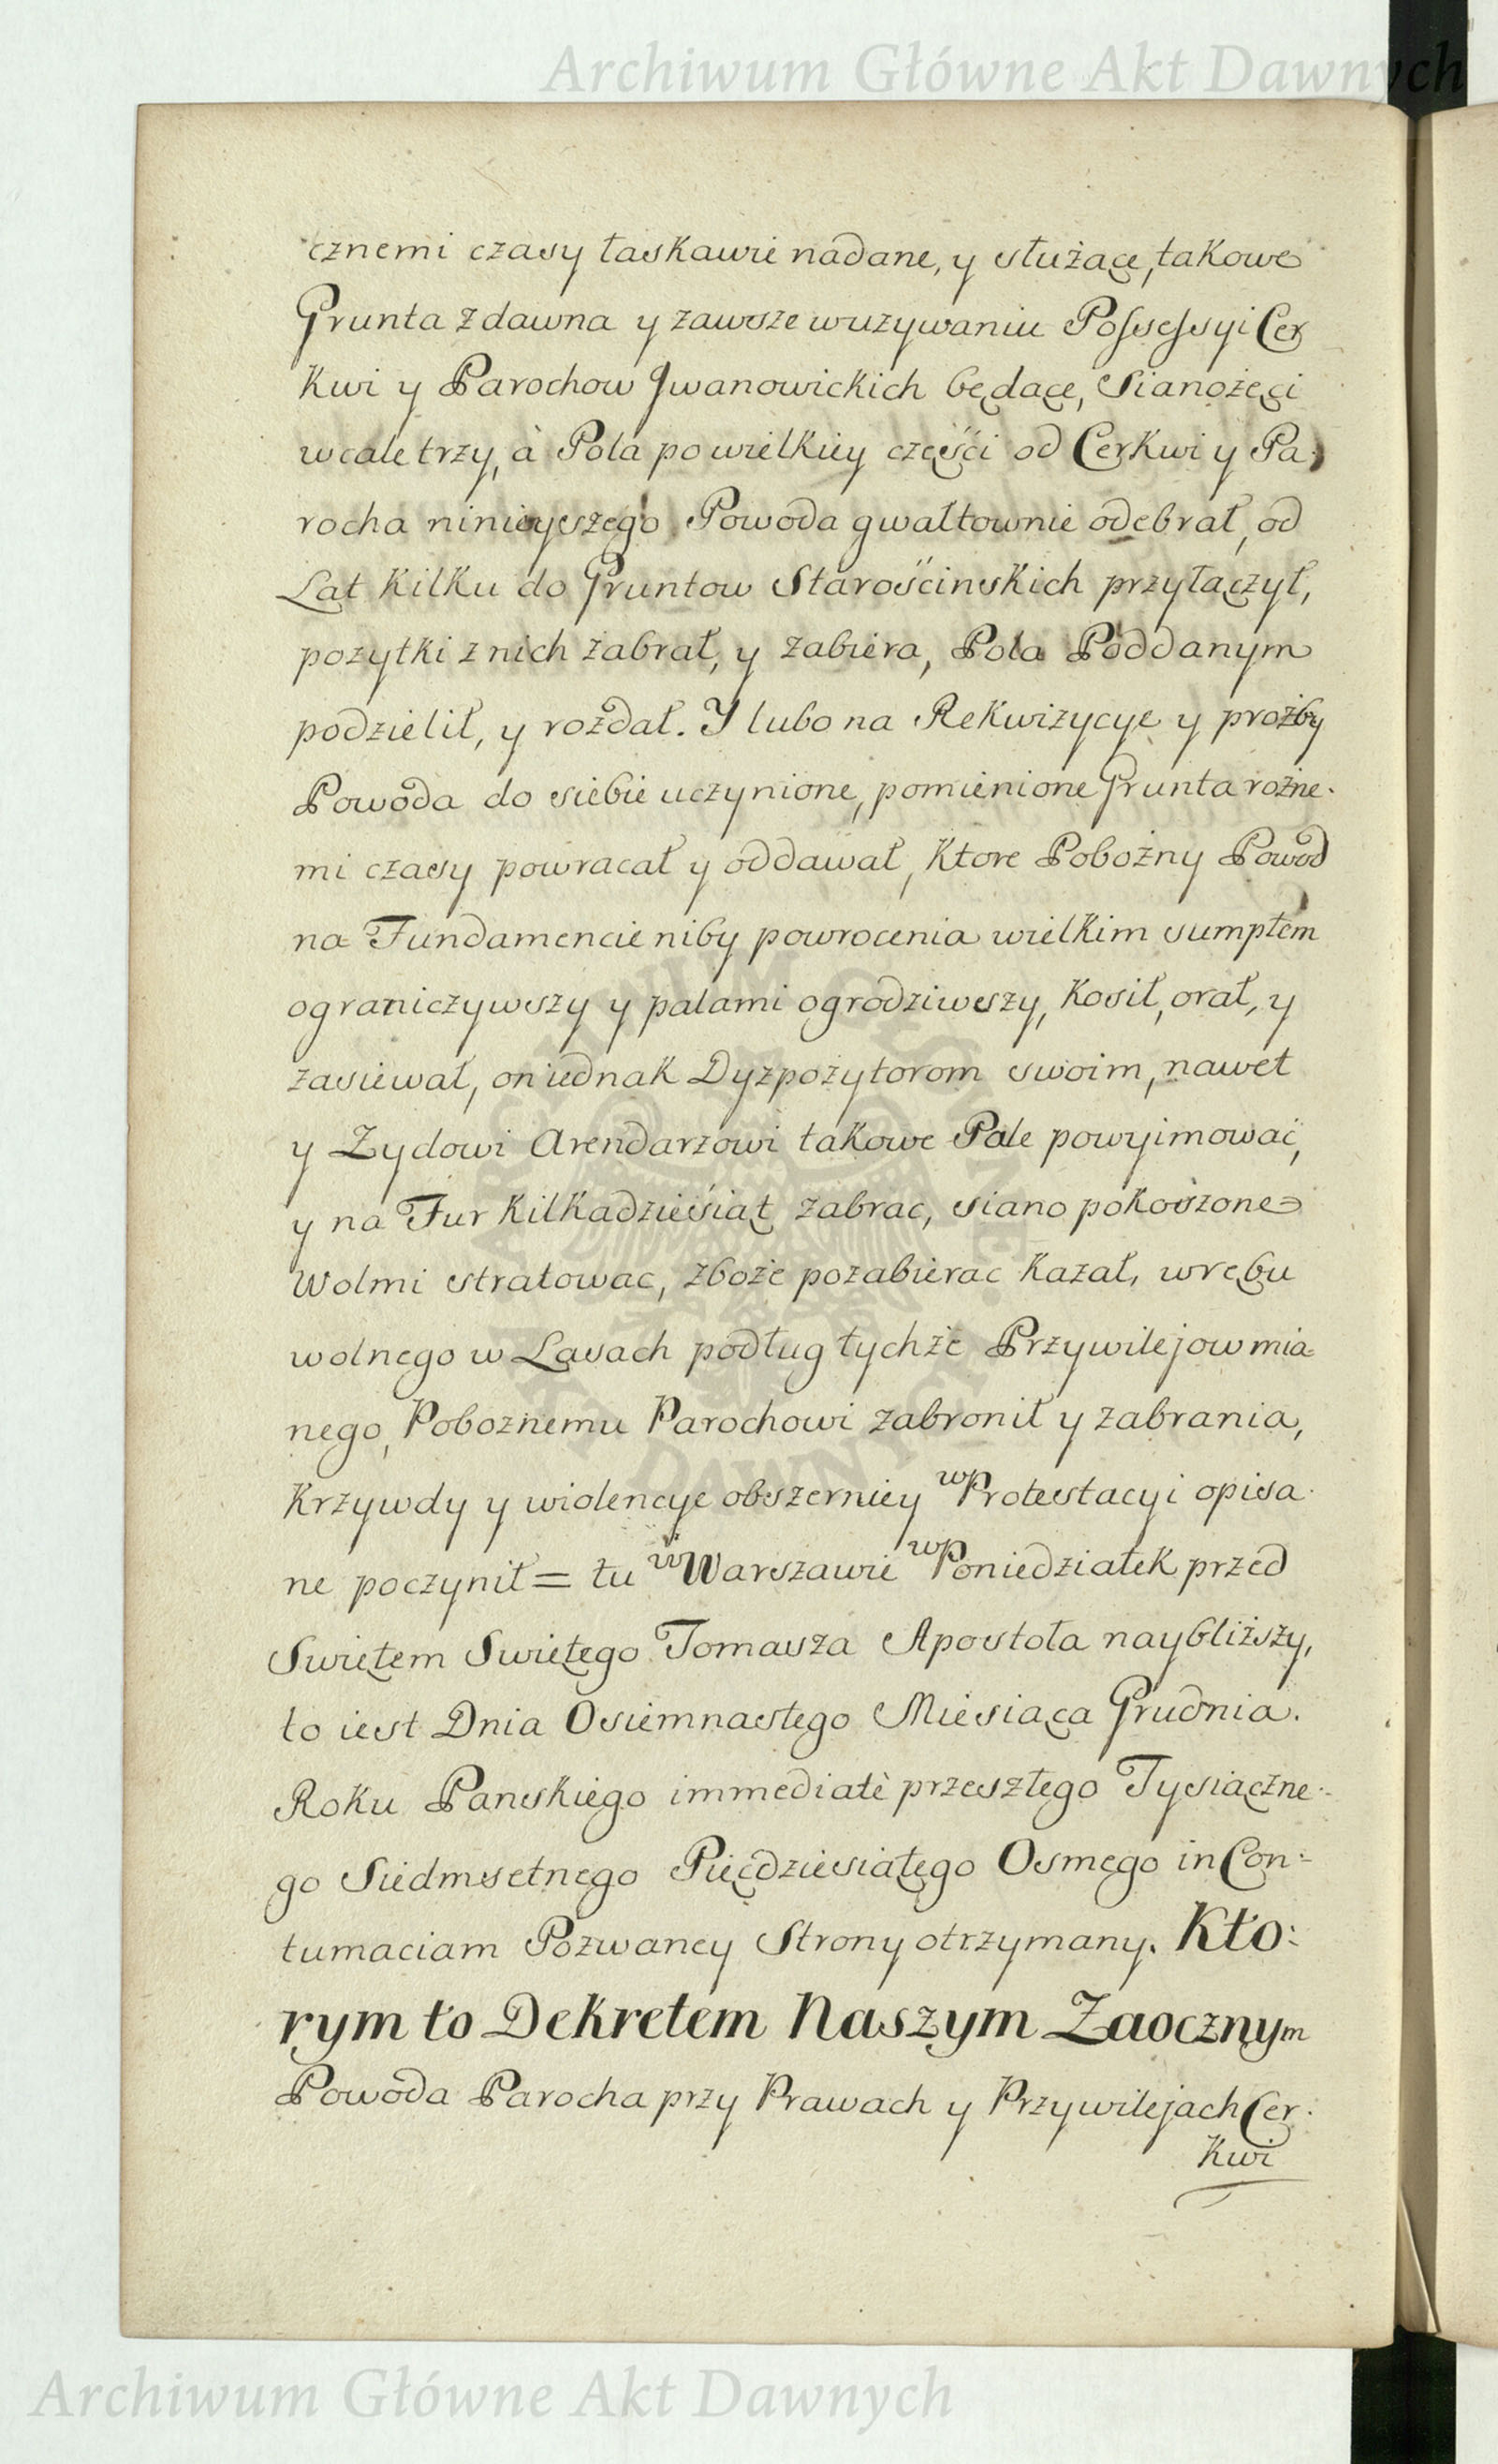 Archiwum Główne Akt Dawnych
cznemi czasy łaskawie nadane, y służące, takowe
Grunta z dawna y zawsze wuzywaniu Possessyi Cer
kwi y Parochow Jwanowickich będące, Sianożęci
wcale trzy, à Pola po wielkiey części od Cerkwi y Pa
rocha ninieyszego Powoda gwałtownie odebrał, od
Lat kilku do Gruntow Starościnskich przyłączył,
pozytki z nich zabrał, y zabiera, Pola Poddanym
podzielił, y rozdał. Y lubo na Rekwizycye y prozby
Powoda do siebie uczynione, pomienione Grunta rożne-
mi czasy powracał y oddawał, ktore Pobożny Powod
na Fundamencie niby powrocenia wielkim sumptem
ograniczywszy y palami ogrodziwszy, kosił, orał, y
zasiewał, on iednak Dyzpozytorom swoim, nawet
y Zydowi Arendarzowi takowe Pale powyimować,
y na Fur kilkadziesiąt zabrac, siano pokoszone
Wolmi stratowac, zboże pozabierac kazał, wrębu
wolnego w Lasach podług tychże Przywilejow mia=
nego, Poboznemu Parochowi zabronił y zabrania,
krzywdy y wiolencye obszerniey w Protestacyi opisa-
ne poczynił = tu w Warszawie w Poniedziałek przed
Swiętem Swiętego Tomasza Apostoła naybliższy,
to iest Dnia Osiemnastego Miesiąca Grudnia.
Roku Panskiego immediatè przeszłego Tysiączne-
go Siedmsetnego Pięćdziesiątego Osmego in Con-
tumaciam Pozwaney Strony otrzymany. Kto:
rym to Dekretem Naszym Zaocznym
Powoda Parocha przy Prawach y Przywilejach Cer-
kwi
Archiwum Główne Akt Dawnych